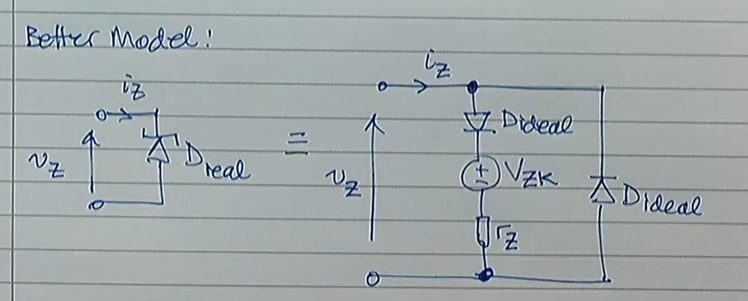 Better Model:
iz
vz
Dreal
≡
iz
vz
Dideal
+
-
VZK
rz
Dideal